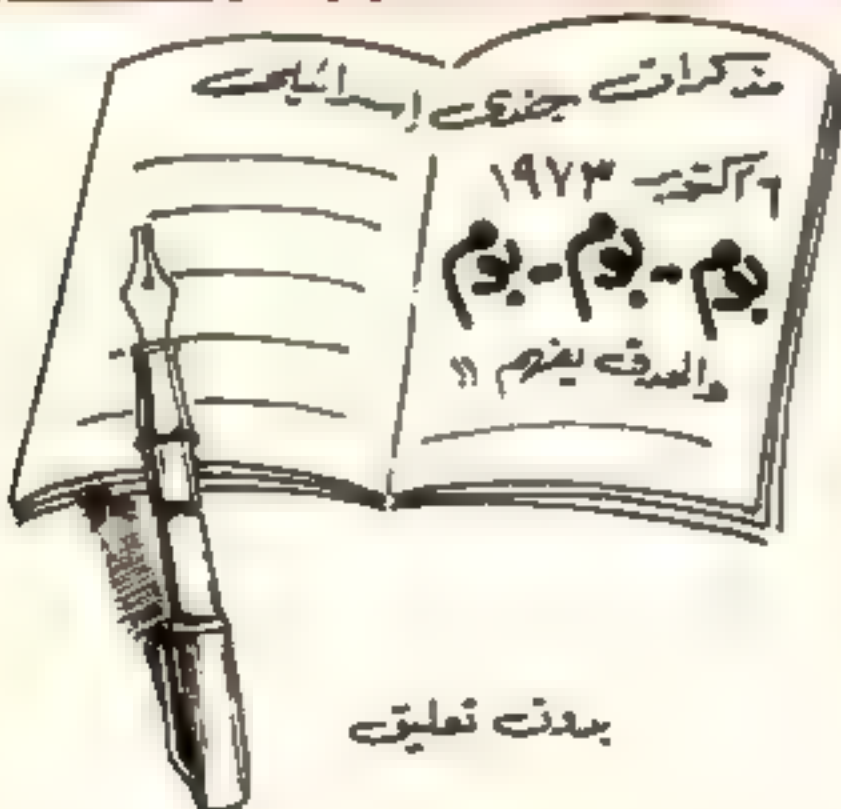 مذكرات جندى إسرائيلى
٦ أكتوبر ١٩٧٣
بوم - بوم - بوم
يفهم "
بدون تعليق